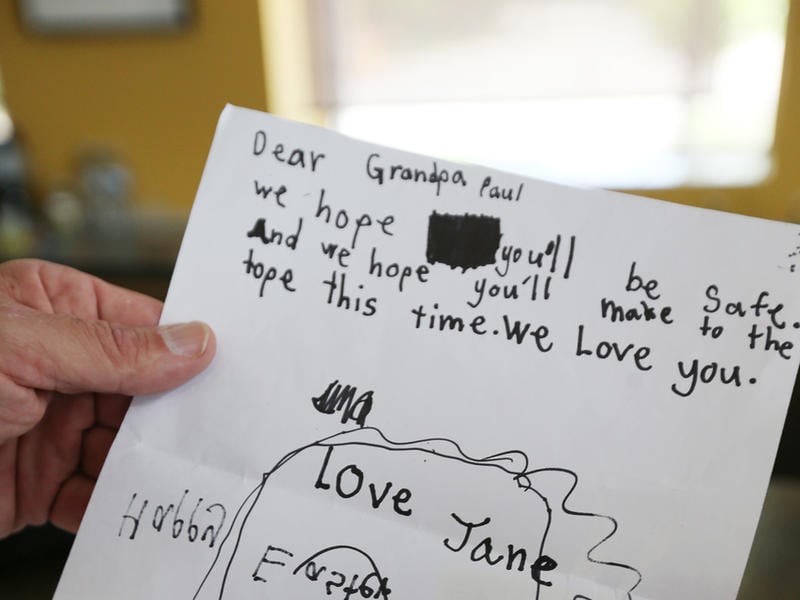 Dear Grandpa Paul
we hope you'll be Safe.
And we hope you'll make to the
tope this time. We Love you.
Love Jane